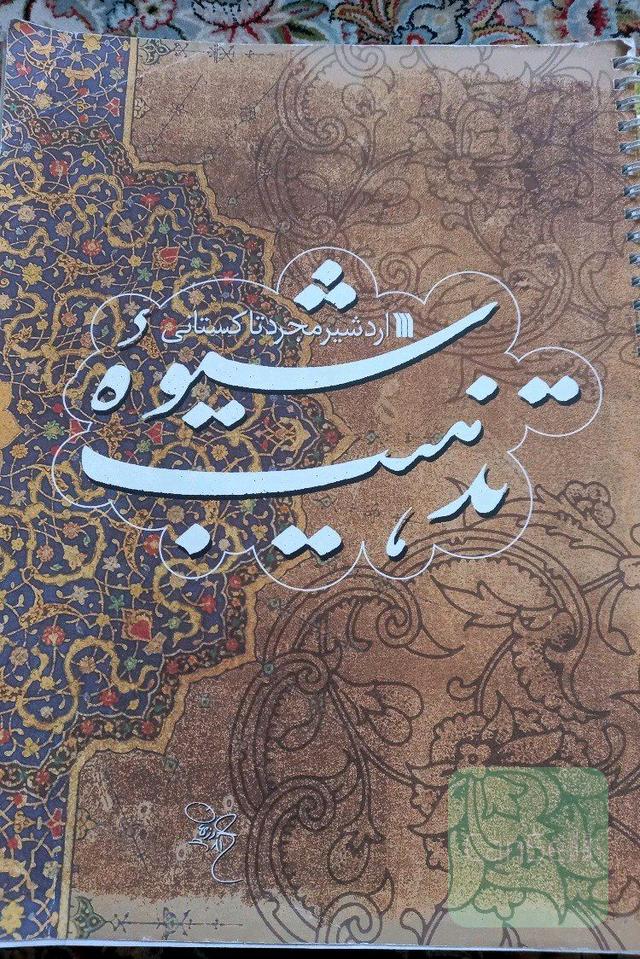 اردشیر مجرد تاکستانی
شیوهٔ
تذهیب